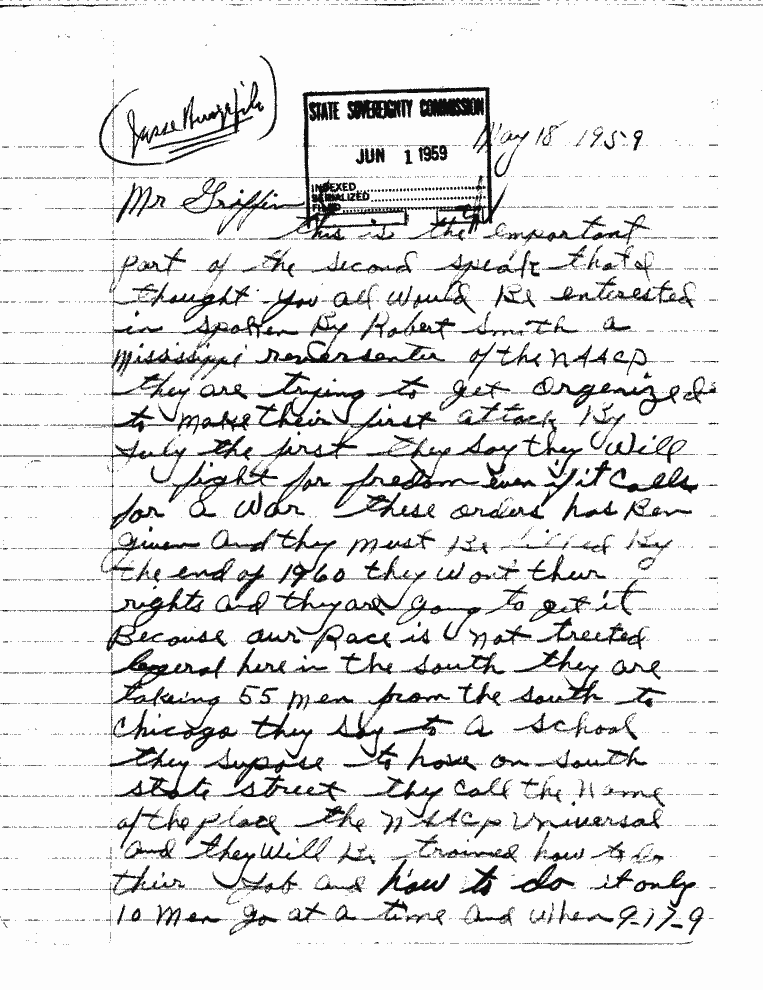 STATE SOVEREIGNTY COMMISSION
JUN 1 1959
INDEXED
SERIALIZED
FILED
May 18 1959
Mr Griffin
this is the emportant
part of the second speak that I
thought you all would Be enterested
in spoken By Robert Smith a
Mississippi of the NAACP
they are trying to get organized
to make their first attack By
July the first they say they Will
fight for freedom even if it calls
for a War these orders has Ben
given and they must Be By
the end of 1960 they Wont their
rights and they are going to get it
Because our Race is not treeted
here in the south they are
takeing 55 men from the south to
Chicago they say to a school
they supose to have on south
state street they call the Name
of the place the NAACP Universal
and they Will Be trained how to do
their Job and how to do it only
10 Men go at a time and when 9-17-9